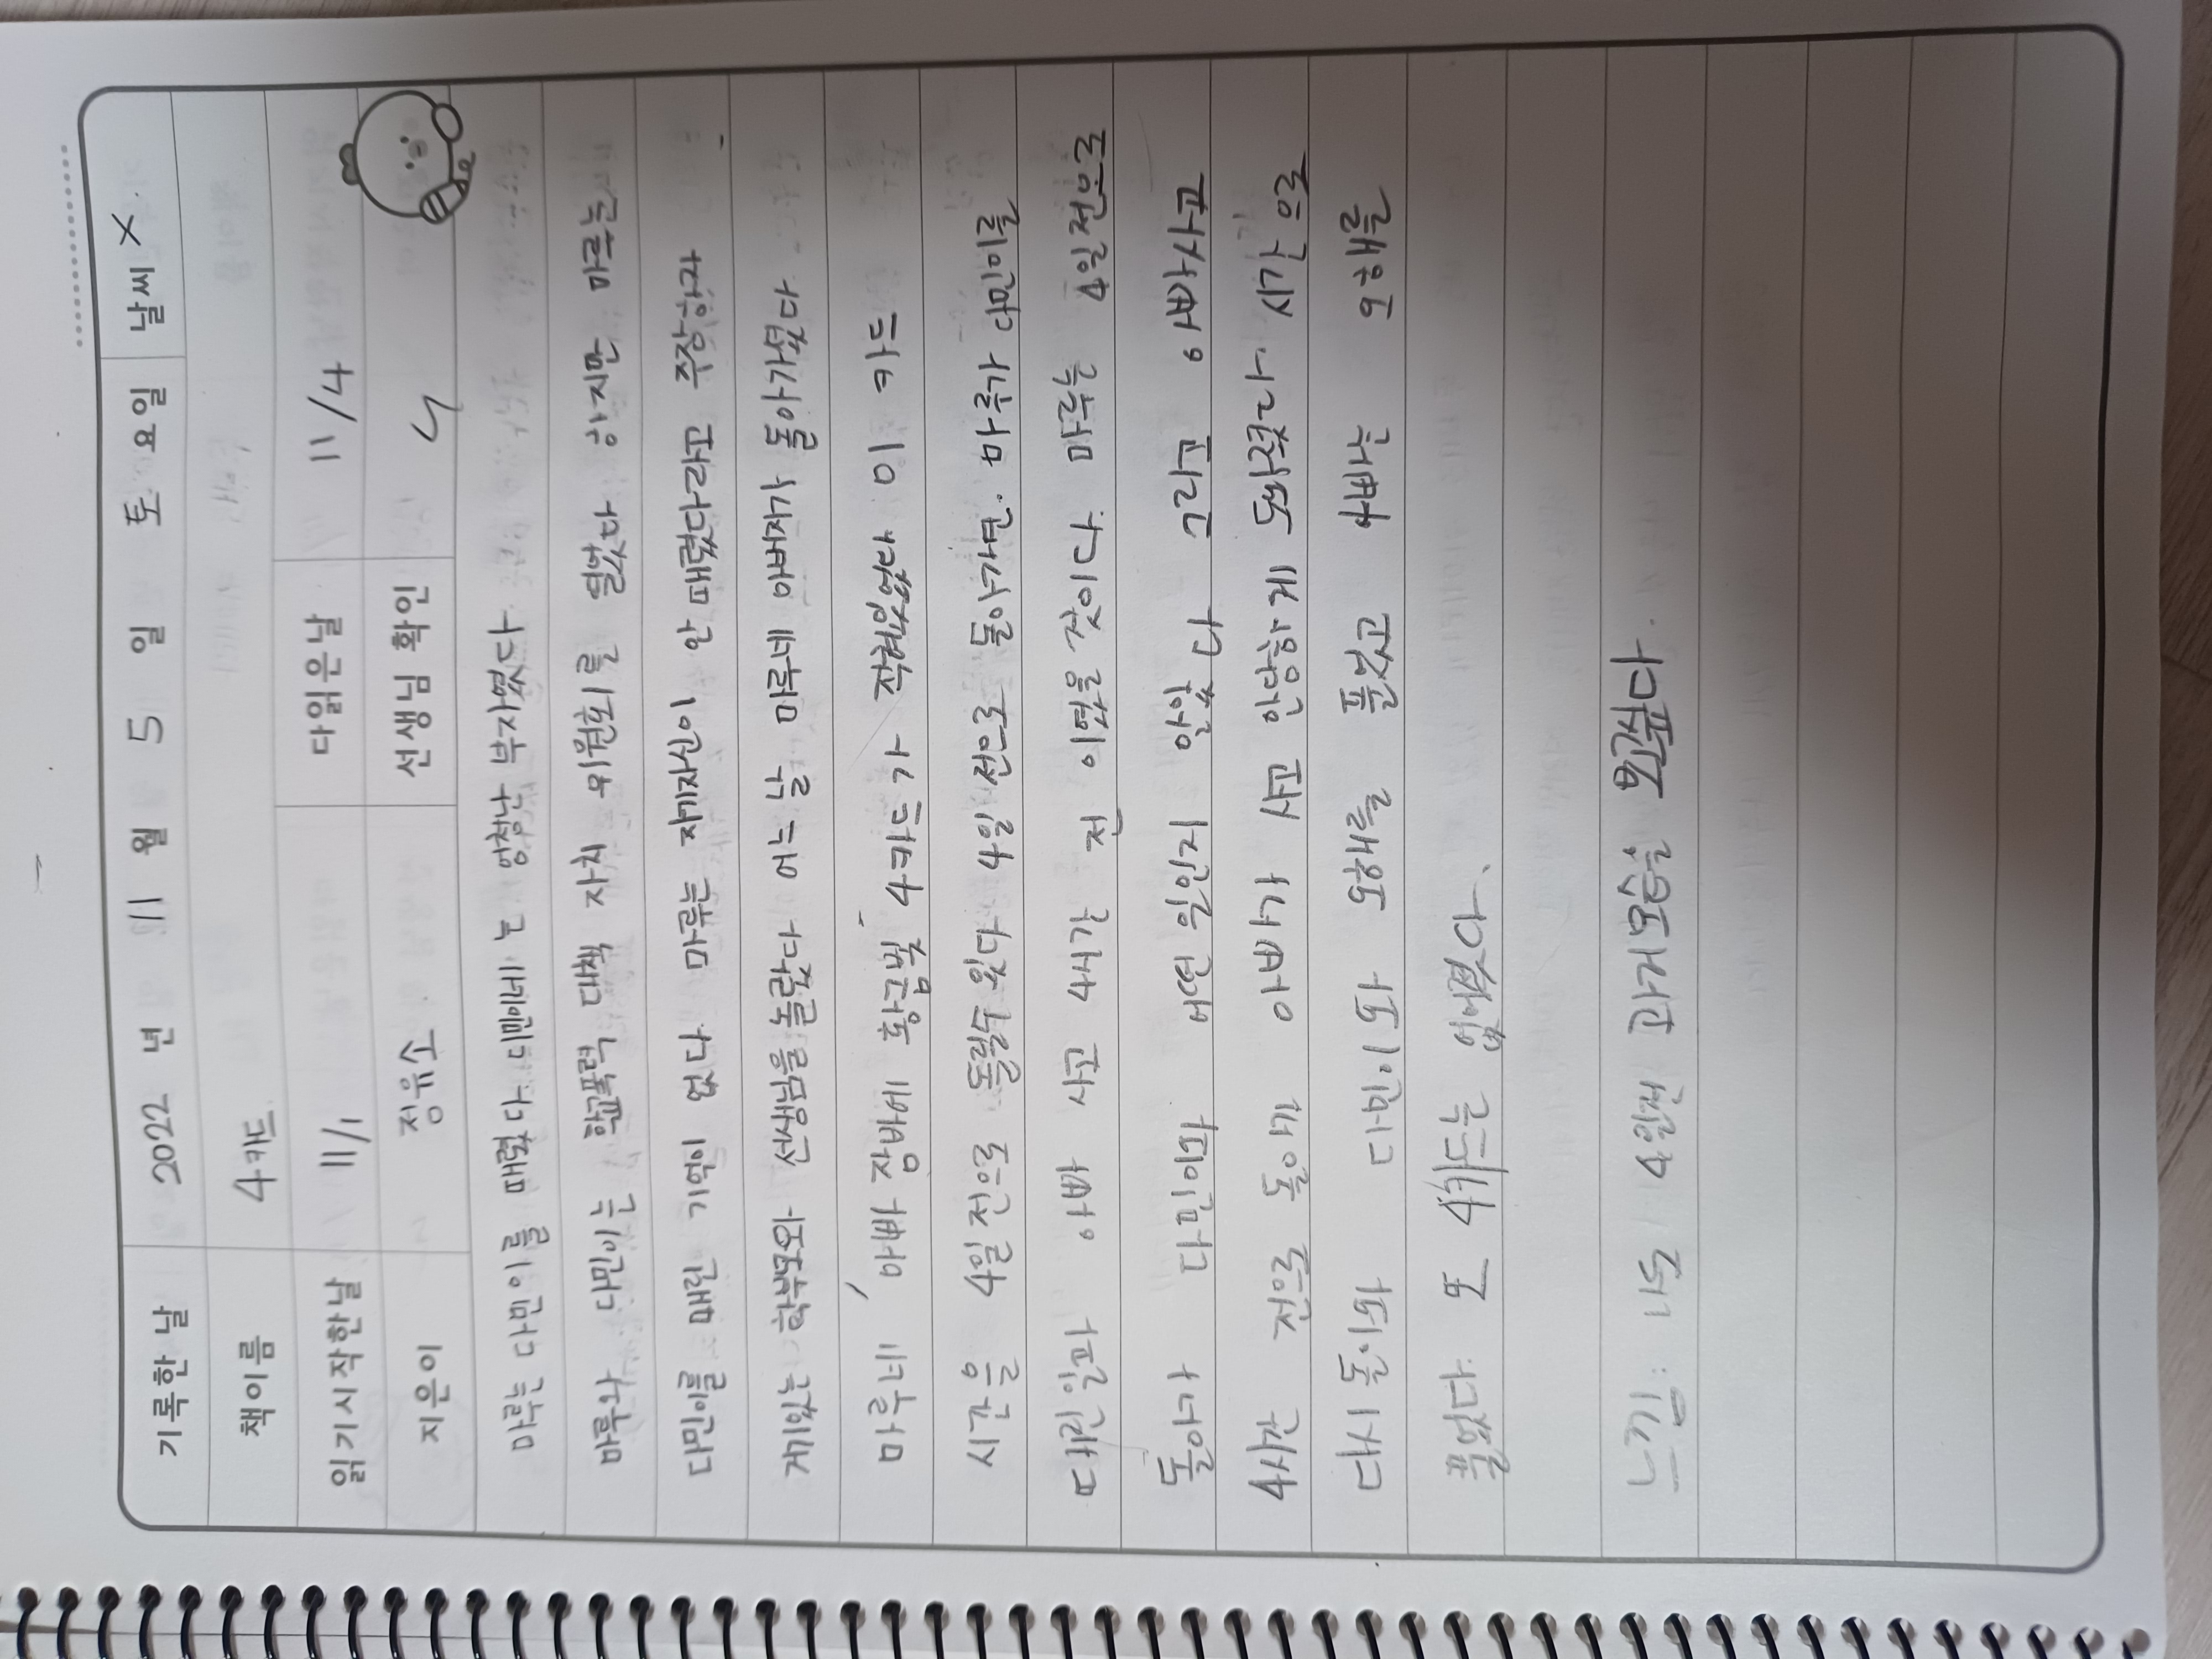 기록한 날 2022 년 11 월 5 일 토 요일 날씨 X
책이름 4카드
읽기시작한날 11/1 다읽은날 11/4
지은이 정유소 선생님 확인
마루는 다민이를 때렸다 다민이네는 엄청난 부자였다
마루와 다민이는 학교폭력 대책 자치 위원회를 열었다 하지만 마루는
다민이를 때린 기억이 없다 마루는 자기자신이 안 때렸다라고 주장하자
거기있는 학부모와 선생님을 놀랐다 어느 날 마루네 아빠가 돌아가셨다
마루네 아빠 잠바에 황금빛 4카드가 적혀있었다 이 카드
시간을 4일 전으로 돌릴수 있다 4일 전으로 돌아가면. 마루가 다민이를
때린일과 아빠 사고 4시간 전 이였을 것이다. 마루는 4일전으로
돌아가 다민이와 어떤 일인지 알았다 그리고 아빠사고
4시간 전으로 돌아가 아빠가 사고 안당하게 되셨다. 시간으로
다시 돌아와 다민이와 오해를 풀었고 아빠는 오해를
풀었다. 또 4카드는 없어졌다.
느낌: 나도 4일전 과거모습을 보고싶다.